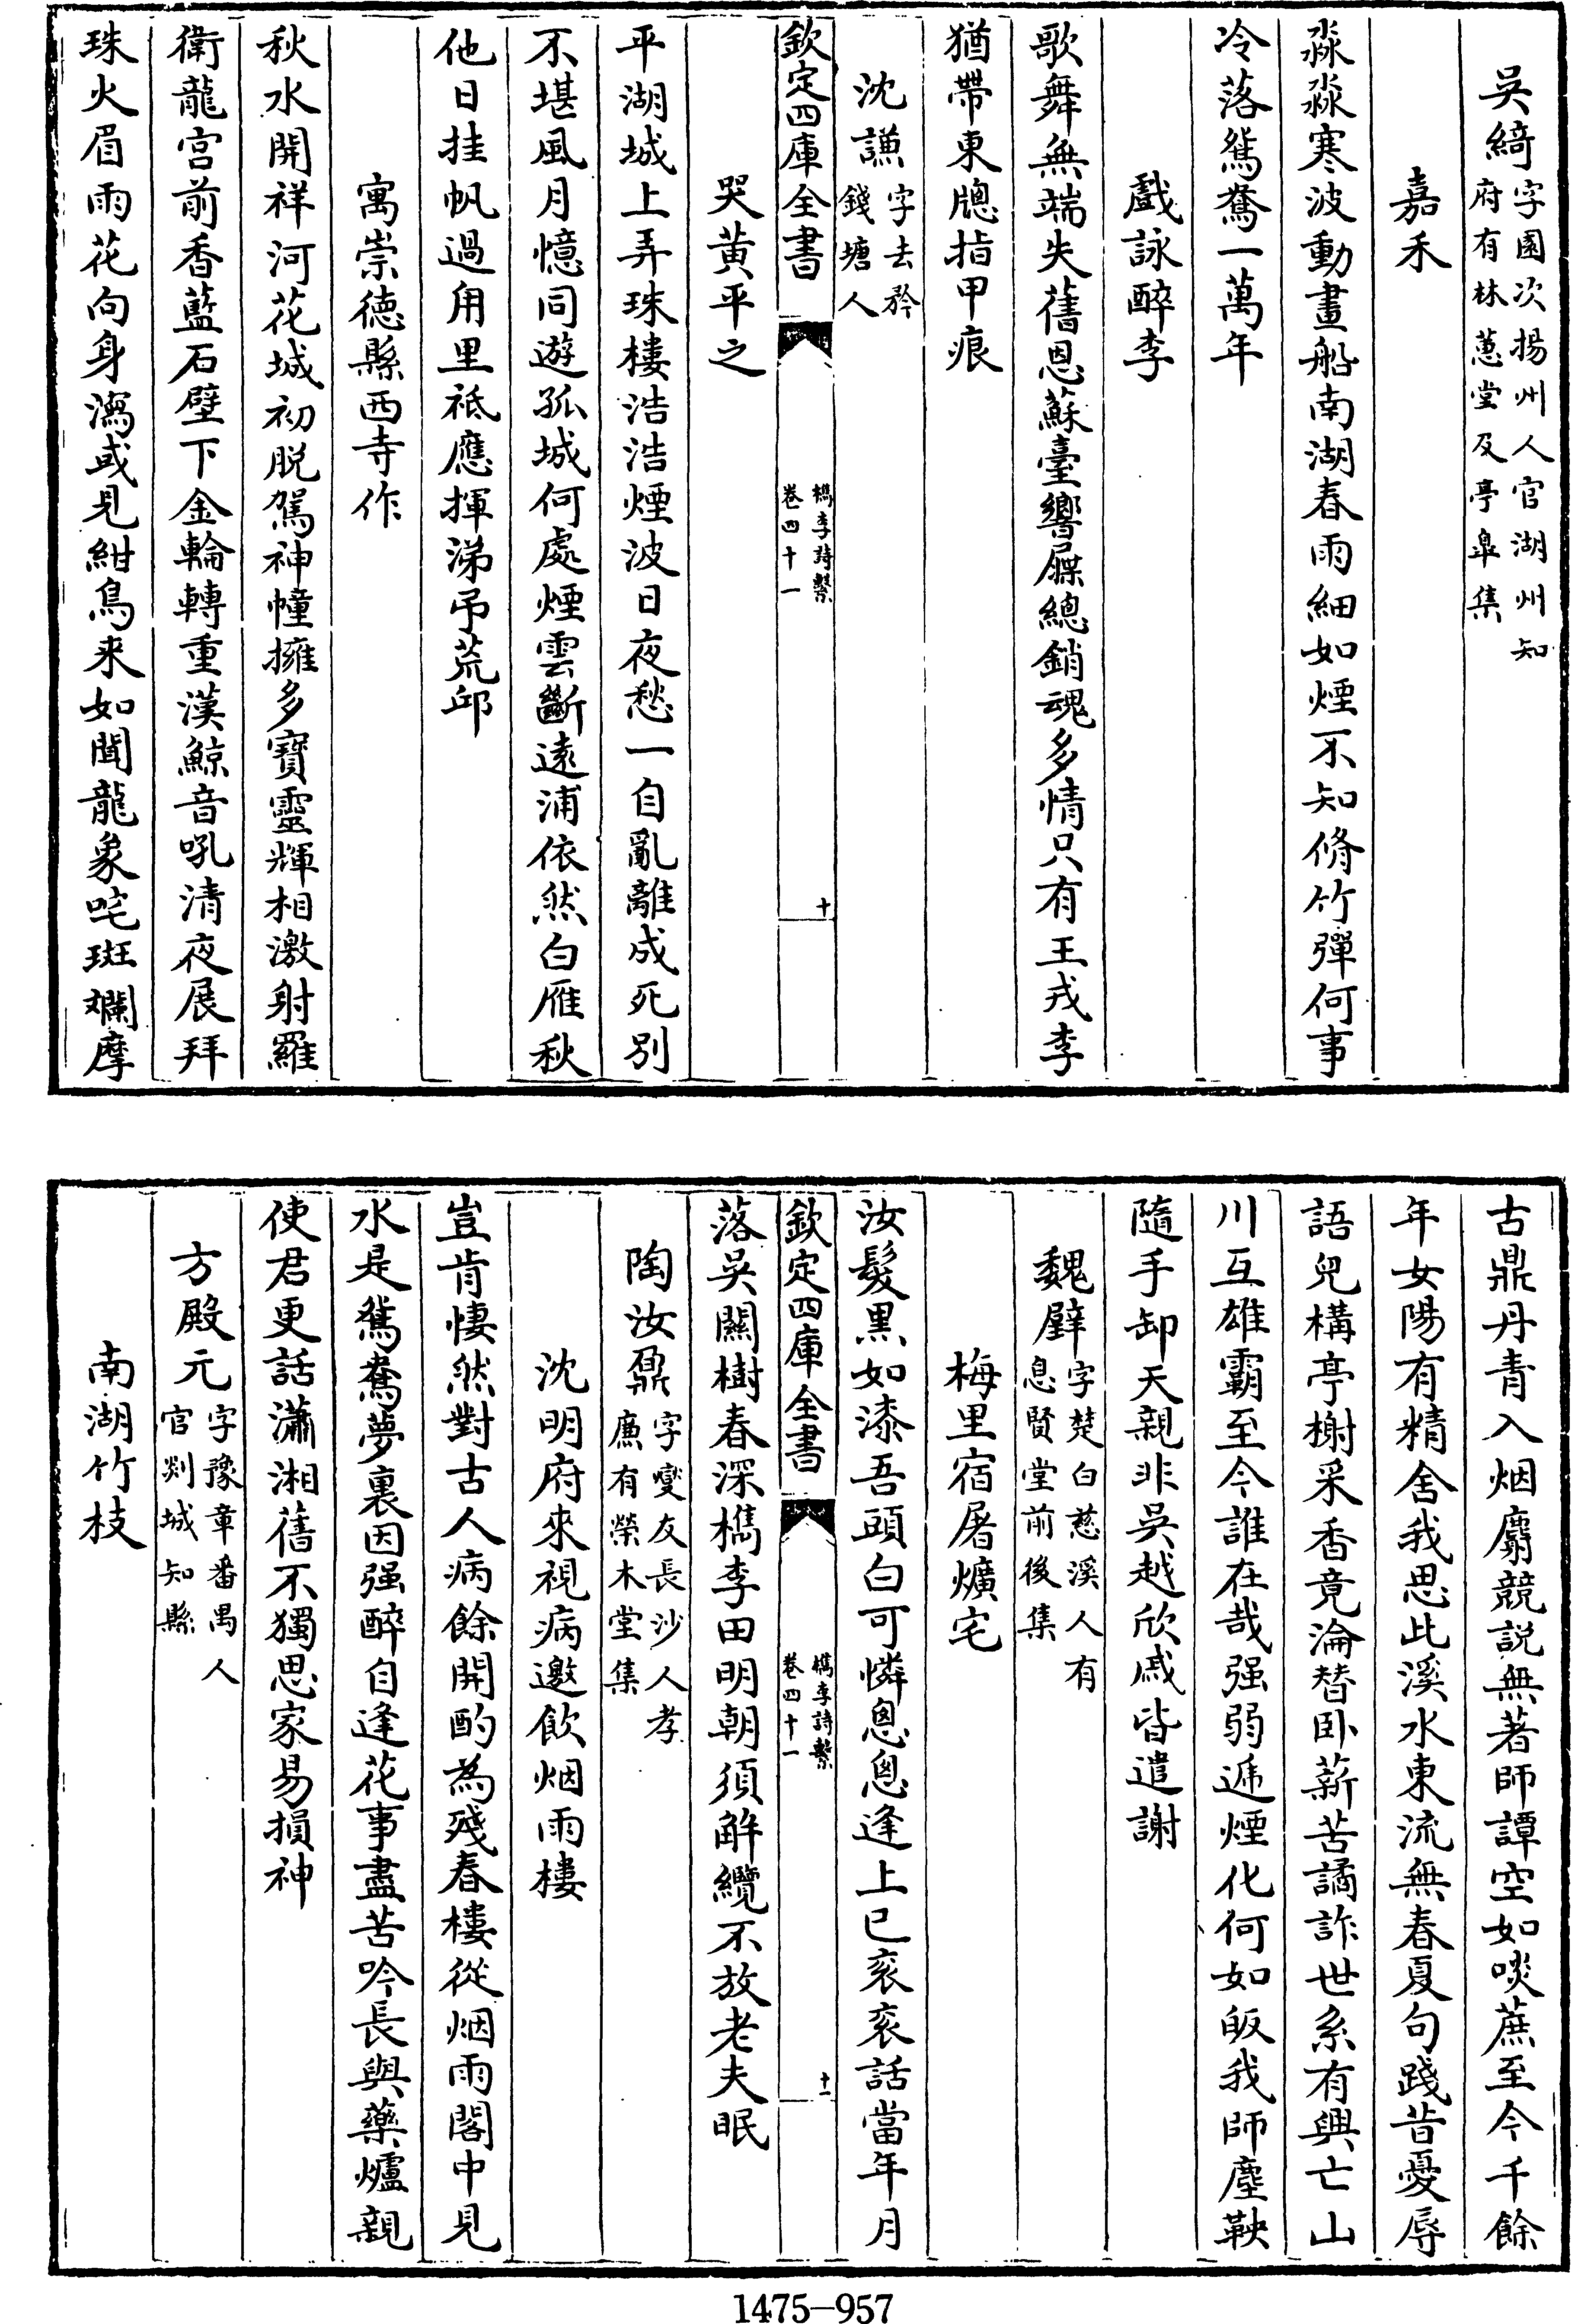 吳綺字園次揚州人官湖州知府有林蕙堂及亭臯集
嘉禾
淼淼寒波動畫船南湖春雨細如煙不知脩竹彈何事
冷落鴛鴦一萬年
戲詠醉李
歌舞無端失舊恩蘇臺響屧總銷魂多情只有王戎李
猶帶東牕指甲痕
沈謙字去矜錢塘人
欽定四庫全書 檇李詩繫卷四十一 十
哭黃平之
平湖城上弄珠樓浩浩煙波日夜愁一自亂離成死別
不堪風月憶同遊孤城何處煙雲斷遠浦依然白雁秋
他日挂帆過甪里祗應揮涕弔荒邱
寓崇德縣西寺作
秋水開祥河花城初脱駕神幢擁多寶靈輝相激射羅
衛龍宮前香藍石壁下金輪轉重漢鯨音吼清夜展拜
珠火眉雨花向身瀉或見紺鳥来如聞龍象咤斑斕摩
古鼎丹青入烟麝競説無著師譚空如啖蔗至今千餘
年女陽有精舍我思此溪水東流無春夏句踐昔憂辱
語兒構亭榭采香竟淪替卧薪苦譎詐世系有興亡山
川互雄霸至今誰在哉强弱遞煙化何如皈我師塵鞅
隨手卸天親非吳越欣戚皆遣謝
魏㜸字楚白慈溪人有息賢堂前後集
梅里宿屠爌宅
汝髮黒如漆吾頭白可憐悤悤逢上巳衮衮話當年月
欽定四庫全書 檇李詩繫卷四十一 十一
落吳關樹春深檇李田明朝須解纜不放老夫眠
陶汝鼐字燮友長沙人孝廉有榮木堂集
沈明府來視病邀飲烟雨樓
豈肯悽然對古人病餘開酌為殘春樓從烟雨閣中見
水是鴛鴦夢裏因强醉自逢花事盡苦吟長與藥爐親
使君更話瀟湘舊不獨思家易損神
方殿元字豫章番禺人官剡城知縣
南湖竹枝
1475-957